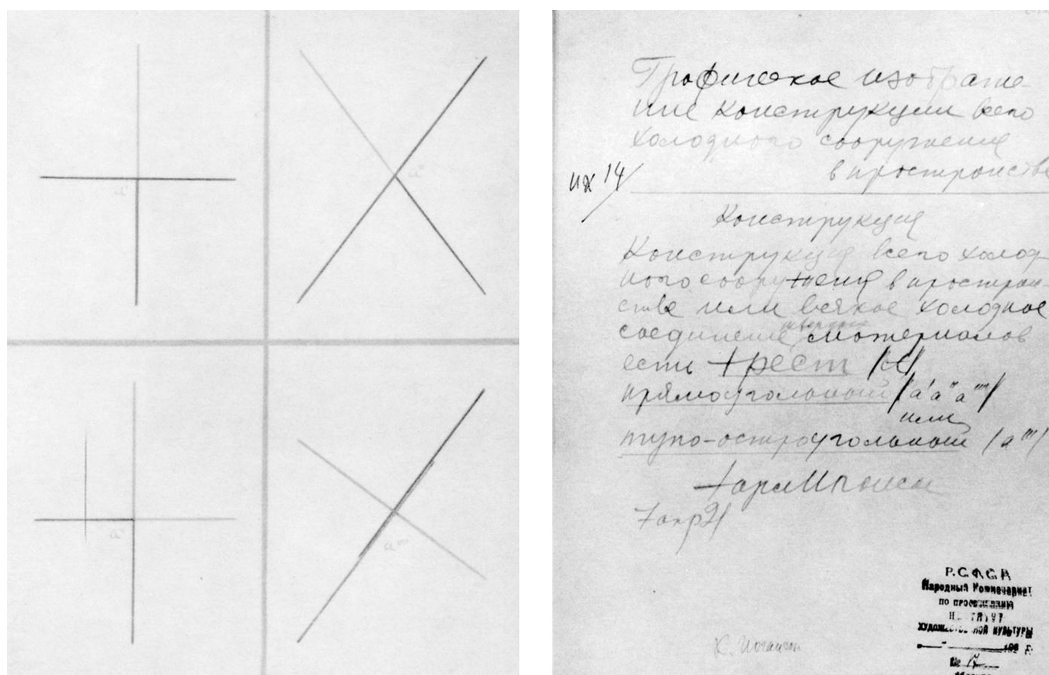 Графическое изображе-
ние конструкции всего
холодного сооружения
в пространстве
ИХ 14/
Конструкция
Конструкция всего холод-
ного сооружения в простран-
стве или всякое холодное
соединение твердых материалов
есть +рест /а/
прямоугольный /а' а" а'"/
или
тупо-остроугольный /а'"/
+арл Иогансон
7 апр 21
Р.С.Ф.С.Р.
Народный Комиссариат
по просвещению
ИНСТИТУТ
ХУДОЖЕСТВЕННОЙ КУЛЬТУРЫ
192 г.
№
К. Иогансон